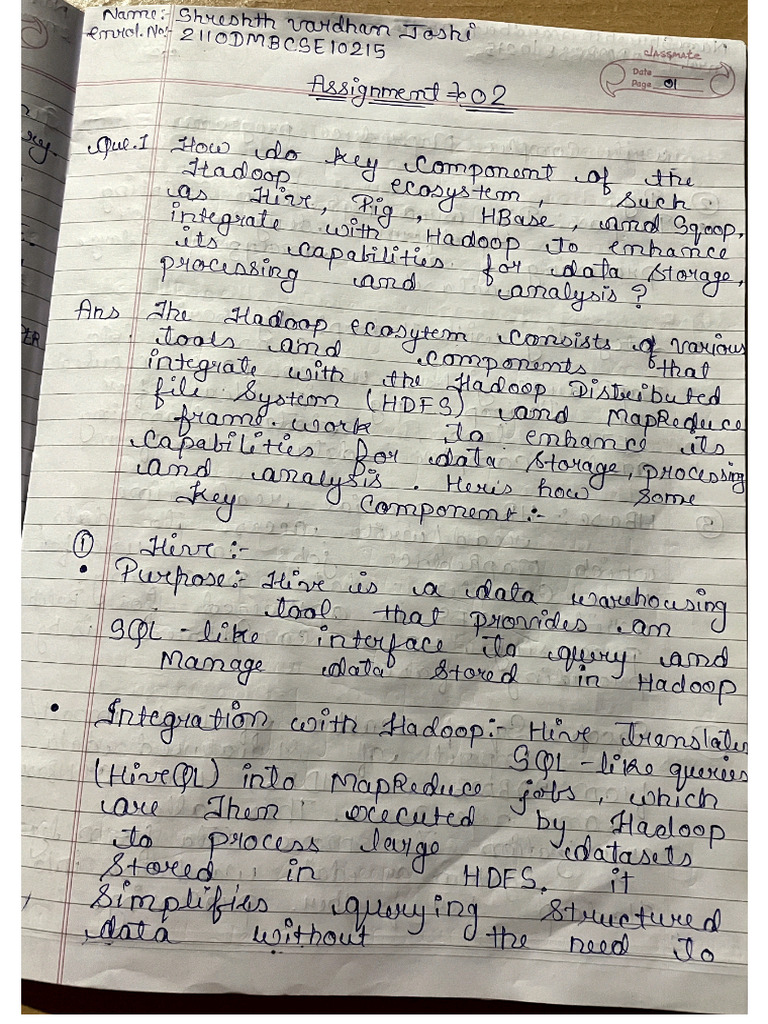 Name:- Shreshth Vardhan Joshi
Enrol.No:- 2110DMBCSE10215
classmate
Date
Page 01
Assignment → 02
Que.1 How do key component of the
Hadoop ecosystem, such
as Hive, Pig, HBase, and Sqoop,
integrate with Hadoop to enhance
its capabilities for data storage,
processing and analysis?
Ans The Hadoop ecosytem consists of various
tools and components that
integrate with the Hadoop Distributed
file System (HDFS) and MapReduce
frame.work to enhance its
capabilities for data storage, processing
and analysis. Her is how some
Key Component:-
① Hive:-
• Purpose:- Hive is a data warehousing
tool that provides an
SQL-like interface to query and
Manage data stored in Hadoop
• Integration with Hadoop:- Hive Translates
SQL-like queries
(HiveQL) into MapReduce jobs, which
are Then executed by Hadoop
to process large datasets
Stored in HDFS. it
Simplifies querying structured
data without the need to